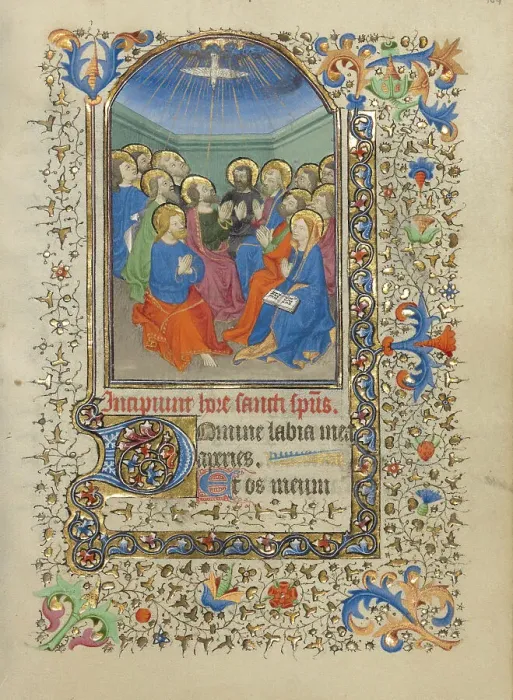 Incipiunt hore sancti sp̄us.
Domine labia mea
aperies.
Et os meum